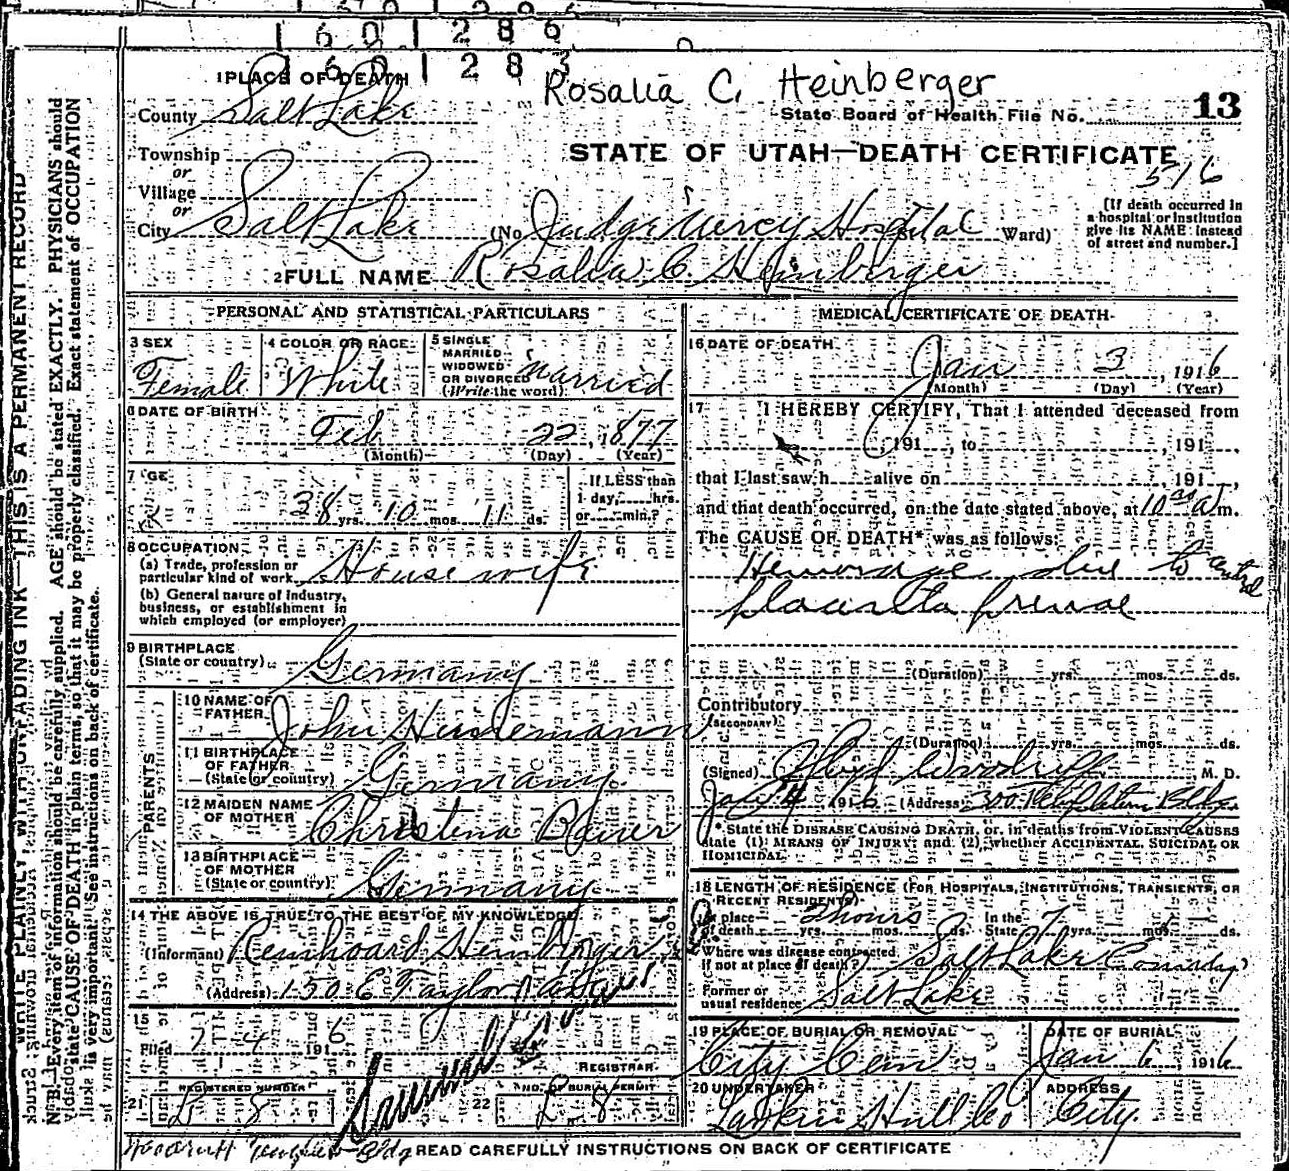 1 6 0 1 2 8 6
1 6 0 1 2 8 3
Rosalia C. Heinberger
1 PLACE OF DEATH
County Salt Lake
State Board of Health File No. 13
STATE OF UTAH—DEATH CERTIFICATE
516
Township
or
Village
or
City Salt Lake (No. Judge Mercy Hospital St. Ward)
[If death occurred in
a hospital or institution
give its NAME instead
of street and number.]
2 FULL NAME Rosalia C. Heinberger
PERSONAL AND STATISTICAL PARTICULARS
3 SEX Female
4 COLOR OR RACE White
5 SINGLE
MARRIED
WIDOWED
OR DIVORCED
(Write the word) Married
6 DATE OF BIRTH
Feb 22, 1877
(Month) (Day) (Year)
7 AGE
38 yrs. 10 mos. 11 ds.
If LESS than
1 day, hrs.
or min.?
8 OCCUPATION
(a) Trade, profession or
particular kind of work Housewife
(b) General nature of industry,
business, or establishment in
which employed (or employer)
9 BIRTHPLACE
(State or country) Germany
PARENTS
10 NAME OF
FATHER John
11 BIRTHPLACE
OF FATHER
(State or country) Germany
12 MAIDEN NAME
OF MOTHER Christena Bauer
13 BIRTHPLACE
OF MOTHER
(State or country) Germany
14 THE ABOVE IS TRUE TO THE BEST OF MY KNOWLEDGE
(Informant) Reinhoard Heinberger
(Address) 150 E Taylor
15
Filed 1 4 1916
REGISTRAR
21 REGISTERED NUMBER
8
22 NO. OF BURIAL PERMIT
8
MEDICAL CERTIFICATE OF DEATH
16 DATE OF DEATH
Jan 3, 1916
(Month) (Day) (Year)
17 I HEREBY CERTIFY, That I attended deceased from
, 191 , to , 191 ,
that I last saw h alive on , 191 ,
and that death occurred, on the date stated above, at 10 a m.
The CAUSE OF DEATH* was as follows:
Hemorage due to central
placenta previae
(Duration) yrs. mos. ds.
Contributory
(SECONDARY)
(Duration) yrs. mos. ds.
(Signed) M. D.
Jan 4 1916 (Address) Templeton Bldg.
* State the DISEASE CAUSING DEATH, or, in deaths from VIOLENT CAUSES
state (1) MEANS OF INJURY; and (2) whether ACCIDENTAL, SUICIDAL OR
HOMICIDAL.
18 LENGTH OF RESIDENCE (FOR HOSPITALS, INSTITUTIONS, TRANSIENTS, OR
RECENT RESIDENTS)
At place
of death 2 hours yrs. mos. ds. In the
State 7 yrs. mos. ds.
Where was disease contracted
if not at place of death? Salt Lake
Former or
usual residence Salt Lake
19 PLACE OF BURIAL OR REMOVAL
City Cem
DATE OF BURIAL
Jan 6, 1916
20 UNDERTAKER
Larkin Hull Co
ADDRESS
City.
READ CAREFULLY INSTRUCTIONS ON BACK OF CERTIFICATE
WRITE PLAINLY, WITH UNFADING INK—THIS IS A PERMANENT RECORD
N. B.—Every item of information should be carefully supplied. AGE should be stated EXACTLY. PHYSICIANS should
state CAUSE OF DEATH in plain terms, so that it may be properly classified. Exact statement of OCCUPATION
is very important. See instructions on back of certificate.